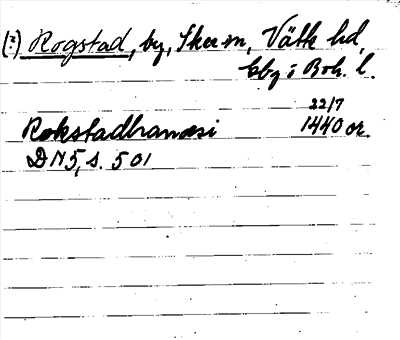 (?) Rogstad, by, Skee sn, Vätte hd,
Gbg i Boh. l.
22/7
Rokstadhranæsi 1440 or.
DN 5, s. 501